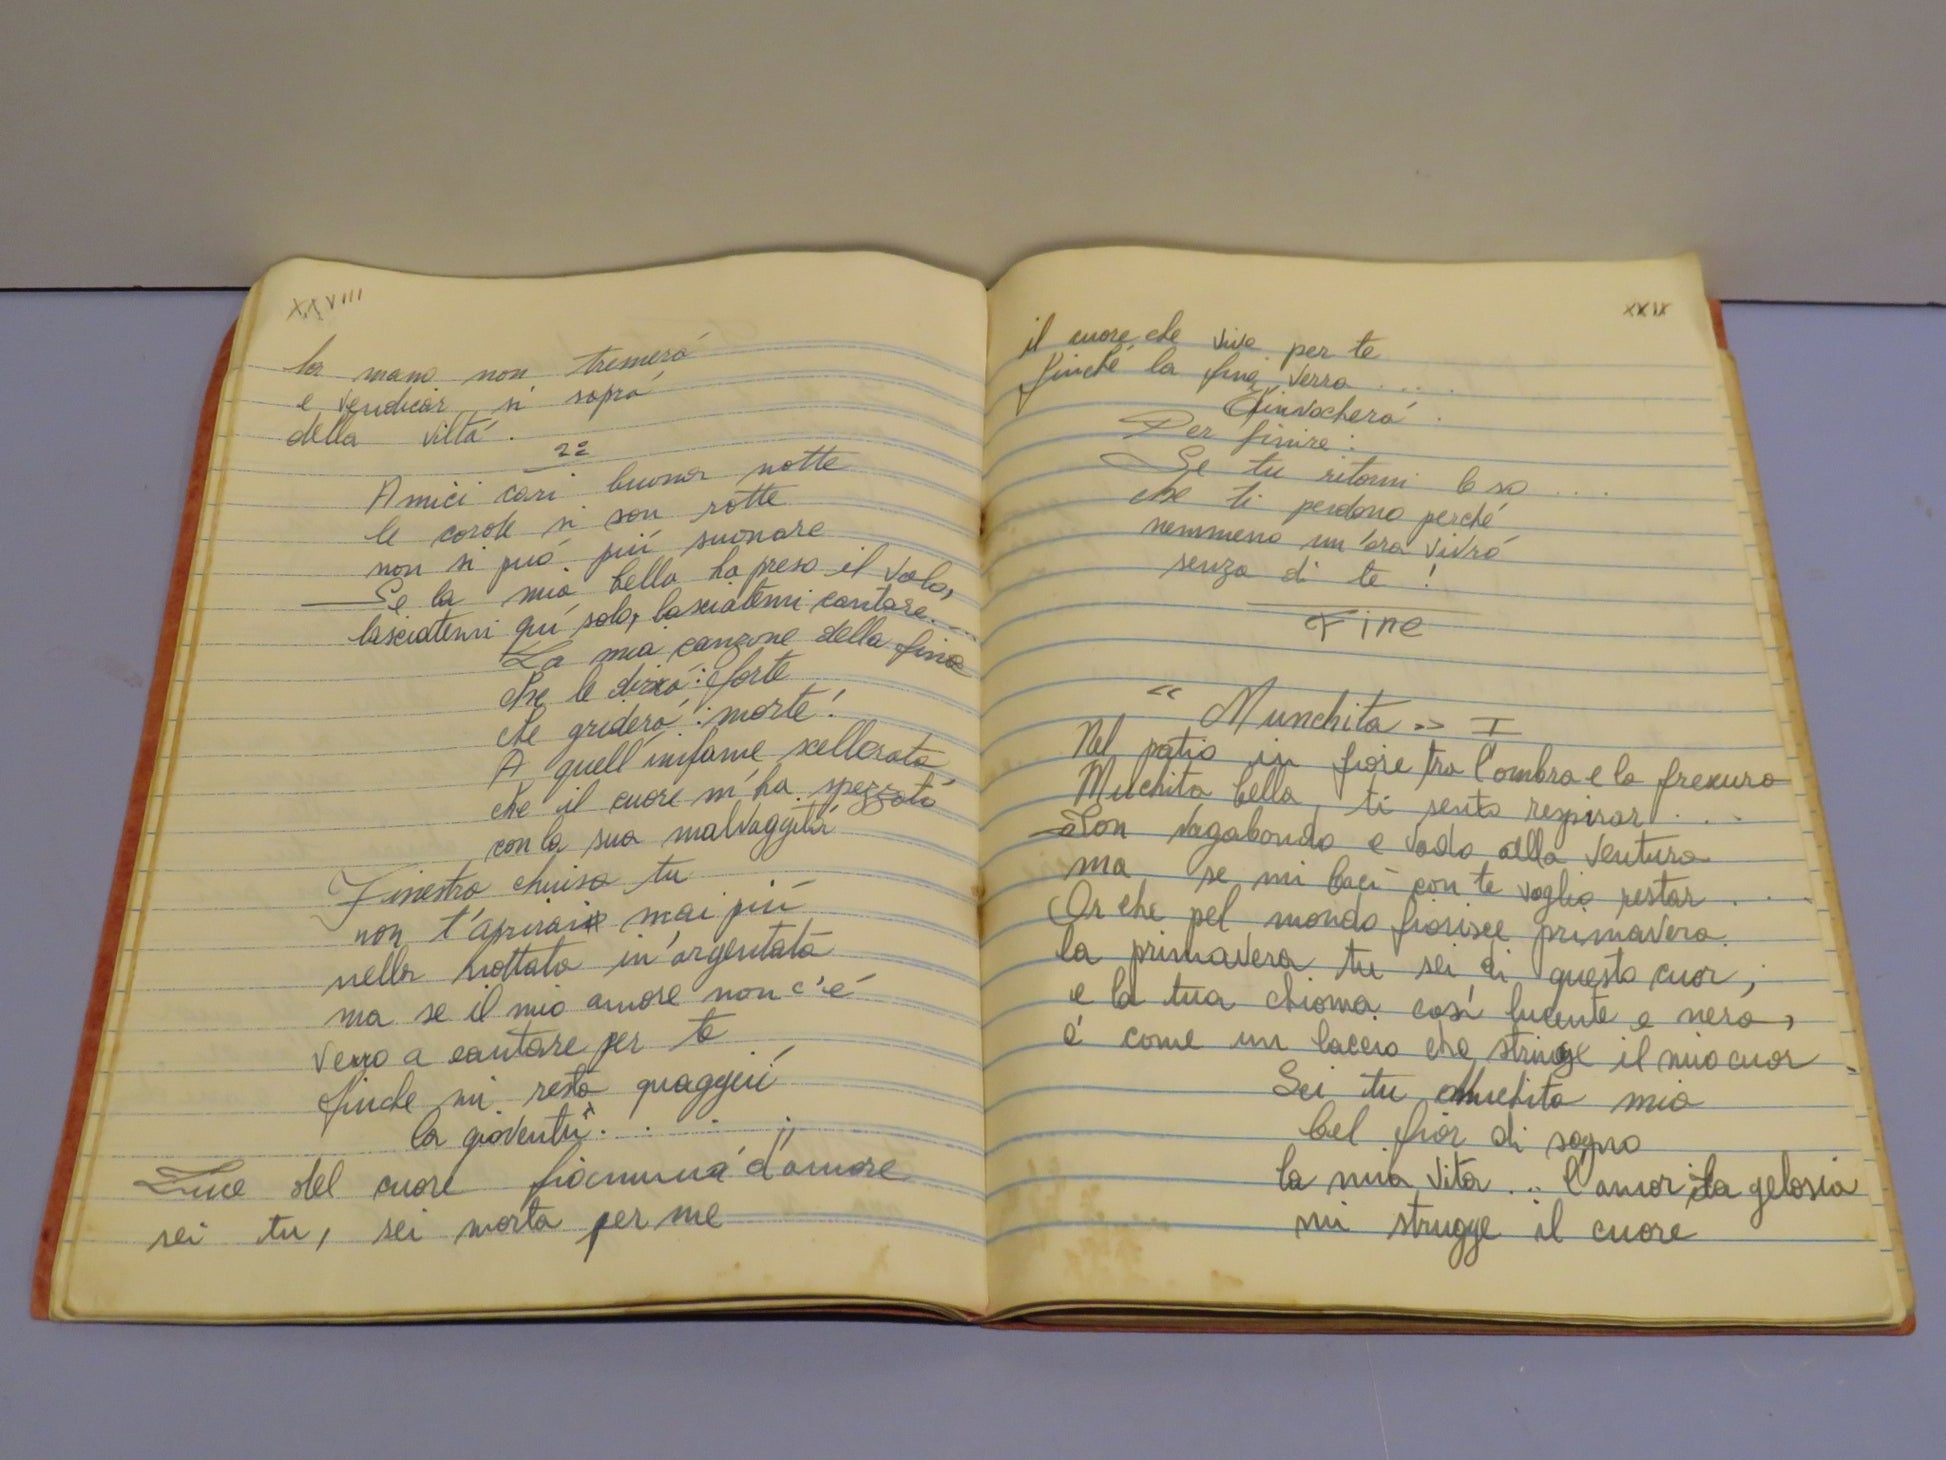 XXVIII
la mano non tremerá
e vendicar si saprá
della viltá.
2º
Amici cari buona notte
le corde si son rotte
non si puó piú suonare
Se la mia bella ha preso il volo,
lasciatemi quí solo, lasciatemi cantare....
La mia canzone della fine
che le dirró: forte
che griderá: morte!
A quell'infame scellerata
che il cuore m'ha spezzato
con la sua malvaggitá
Finestra chiusa tu
non t'aprirai mai piú
nella nottata in'argentata
ma se il mio amore non c'é
verro a cantare per te
finche mi resta quaggiú
la gioventú. . . .
Luce del cuore fiamma d'amore
sei tu, sei morta per me
XXIX
il cuore che vive per te
finché la fine verra .....
t'invocherá.
Per finire:
Se tu ritorni lo so ....
che ti perdono perché
nemmeno un'ora vivró
senza di te!
Fine
“ Munchita » I
Nel patio in fiore tra l'ombra e la frexura
Muchita bella, ti sento respirar . . . .
Son vagabondo e vado alla ventura
ma se mi baci con te voglio restar . . .
Or che pel mondo fiorisce primavera
la primavera tu sei di questo cuor,
e la tua chioma cosí lucente e nera,
é come un laccio che stringe il mio cuor
Sei tu Muchita mia
bel fior di sogno
la mia vita ... l'amor la gelosia
mi strugge il cuore